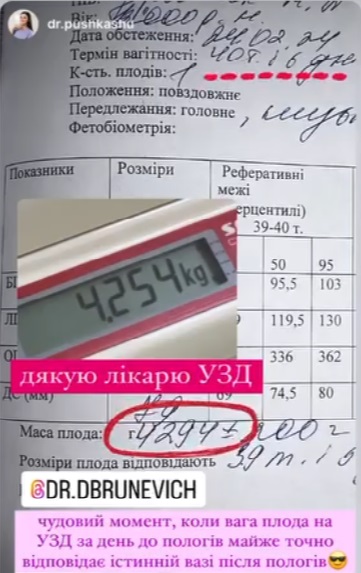 dr.pushkashu
Вік:
Дата обстеження: 24.02.24
Термін вагітності: 40т. і 6 днів
К-сть. плодів: 1
Положення: повздовжнє
Передлежання: головне,
Фетобіометрія:
Показники Розміри Референтивні межі
ерцентилі)
39-40 т.
50 95
95,5 103
119,5 130
336 362
ДС (мм) 69 74,5 80
4.254kg
дякую лікарю УЗД
Маса плода: г 4294 ± 200 г
Розміри плода відповідають 39 т. і 5
@DR.DBRUNEVICH
чудовий момент, коли вага плода на
УЗД за день до пологів майже точно
відповідає істинній вазі після пологів😎